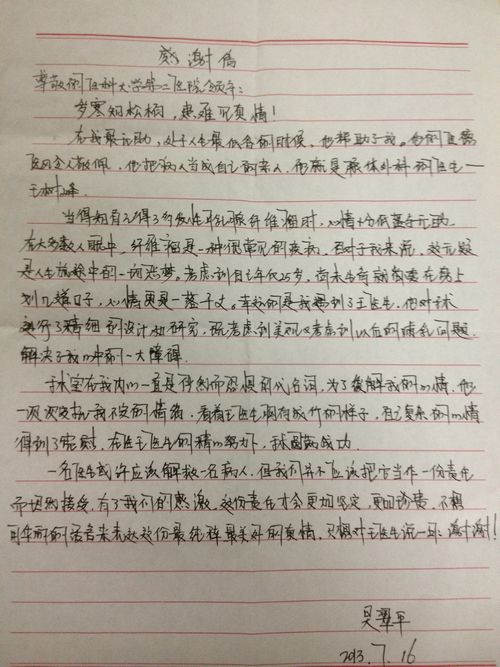 感谢信
尊敬的医科大学第二医院领导:
岁寒知松柏,患难见真情!
在我最无助,处于人生最低谷的时候,他帮助了我。他的医术
医德令人敬佩,他把病人当成自己的亲人,他就是腺体外科的医生—
王树峰.
当得知自己得了多发性乳腺纤维瘤时,心情十分低落与无助.
在大多数人眼中,纤维瘤是一种很常见的疾病,但对于我来说,这无疑
是人生旅途中的一场恶梦。考虑到自己年仅25岁,尚未生育就需要在身上
划几道口子,心情更是一落千丈。幸运的是我遇到了王医生,他对手术
进行了精细的设计和研究,既考虑到美观又考虑到以后的哺乳问题.
解决了我心中的一大障碍.
手术室在我内心一直是恐惧的代名词,为了缓解我的心情,他
一次次安抚我不安的情绪,看着王医生胸有成竹的样子,我复杂的心情
得到了安慰,在王医生的精心努力下,手术圆满成功.
一名医生或许应该解救一名病人,但我们并不应该把它当作一份责任
而坦然接受,有了我们的感激,这份责任才会更加坚定,更加珍贵,不想
用华丽的语言来表达这份最纯粹最美好的真情,只想对王医生说一声:谢谢!
吴翠平
2013.7.16